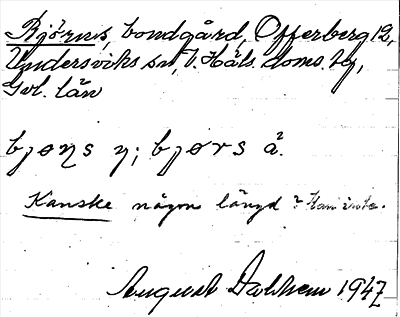 Björnus, bondgård, Offerberg 12,
Undersviks sn, V. Häls. doms. tg,
Gvl. län
bjøņs y; bjørs å.
Kanske någon längd? Kan inte.
August Dalhem 1947